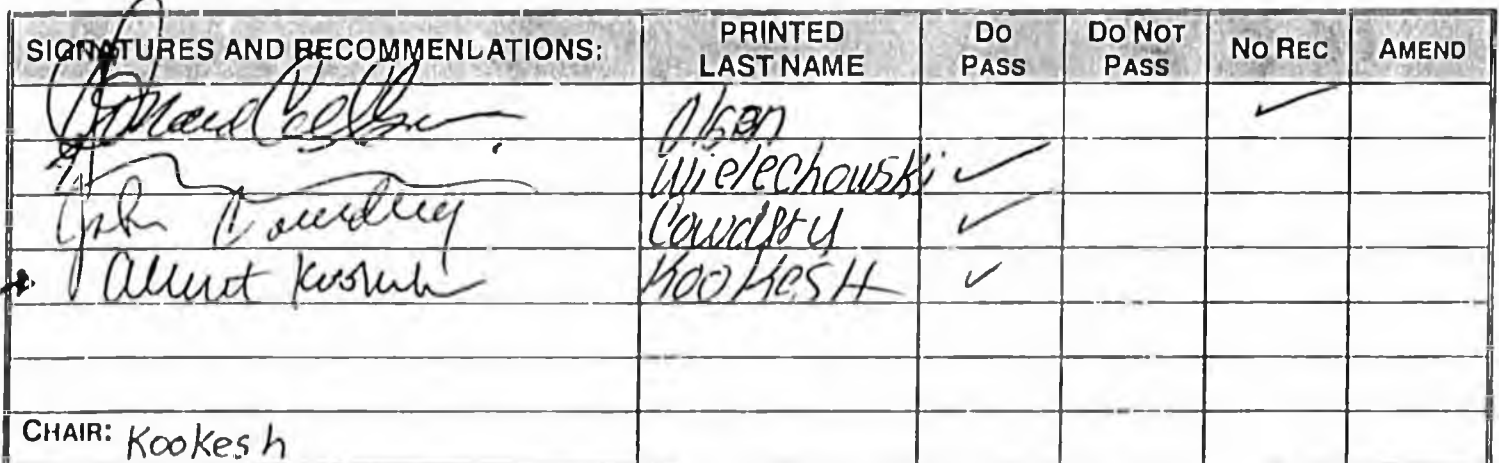 SIGNATURES AND RECOMMENDATIONS: PRINTED LAST NAME DO PASS DO NOT PASS NO REC AMEND
Donald Olson Olson ✓
Wielechowski ✓
John Cowdery Cowdery ✓
Albert Kookesh Kookesh ✓
CHAIR: Kookesh